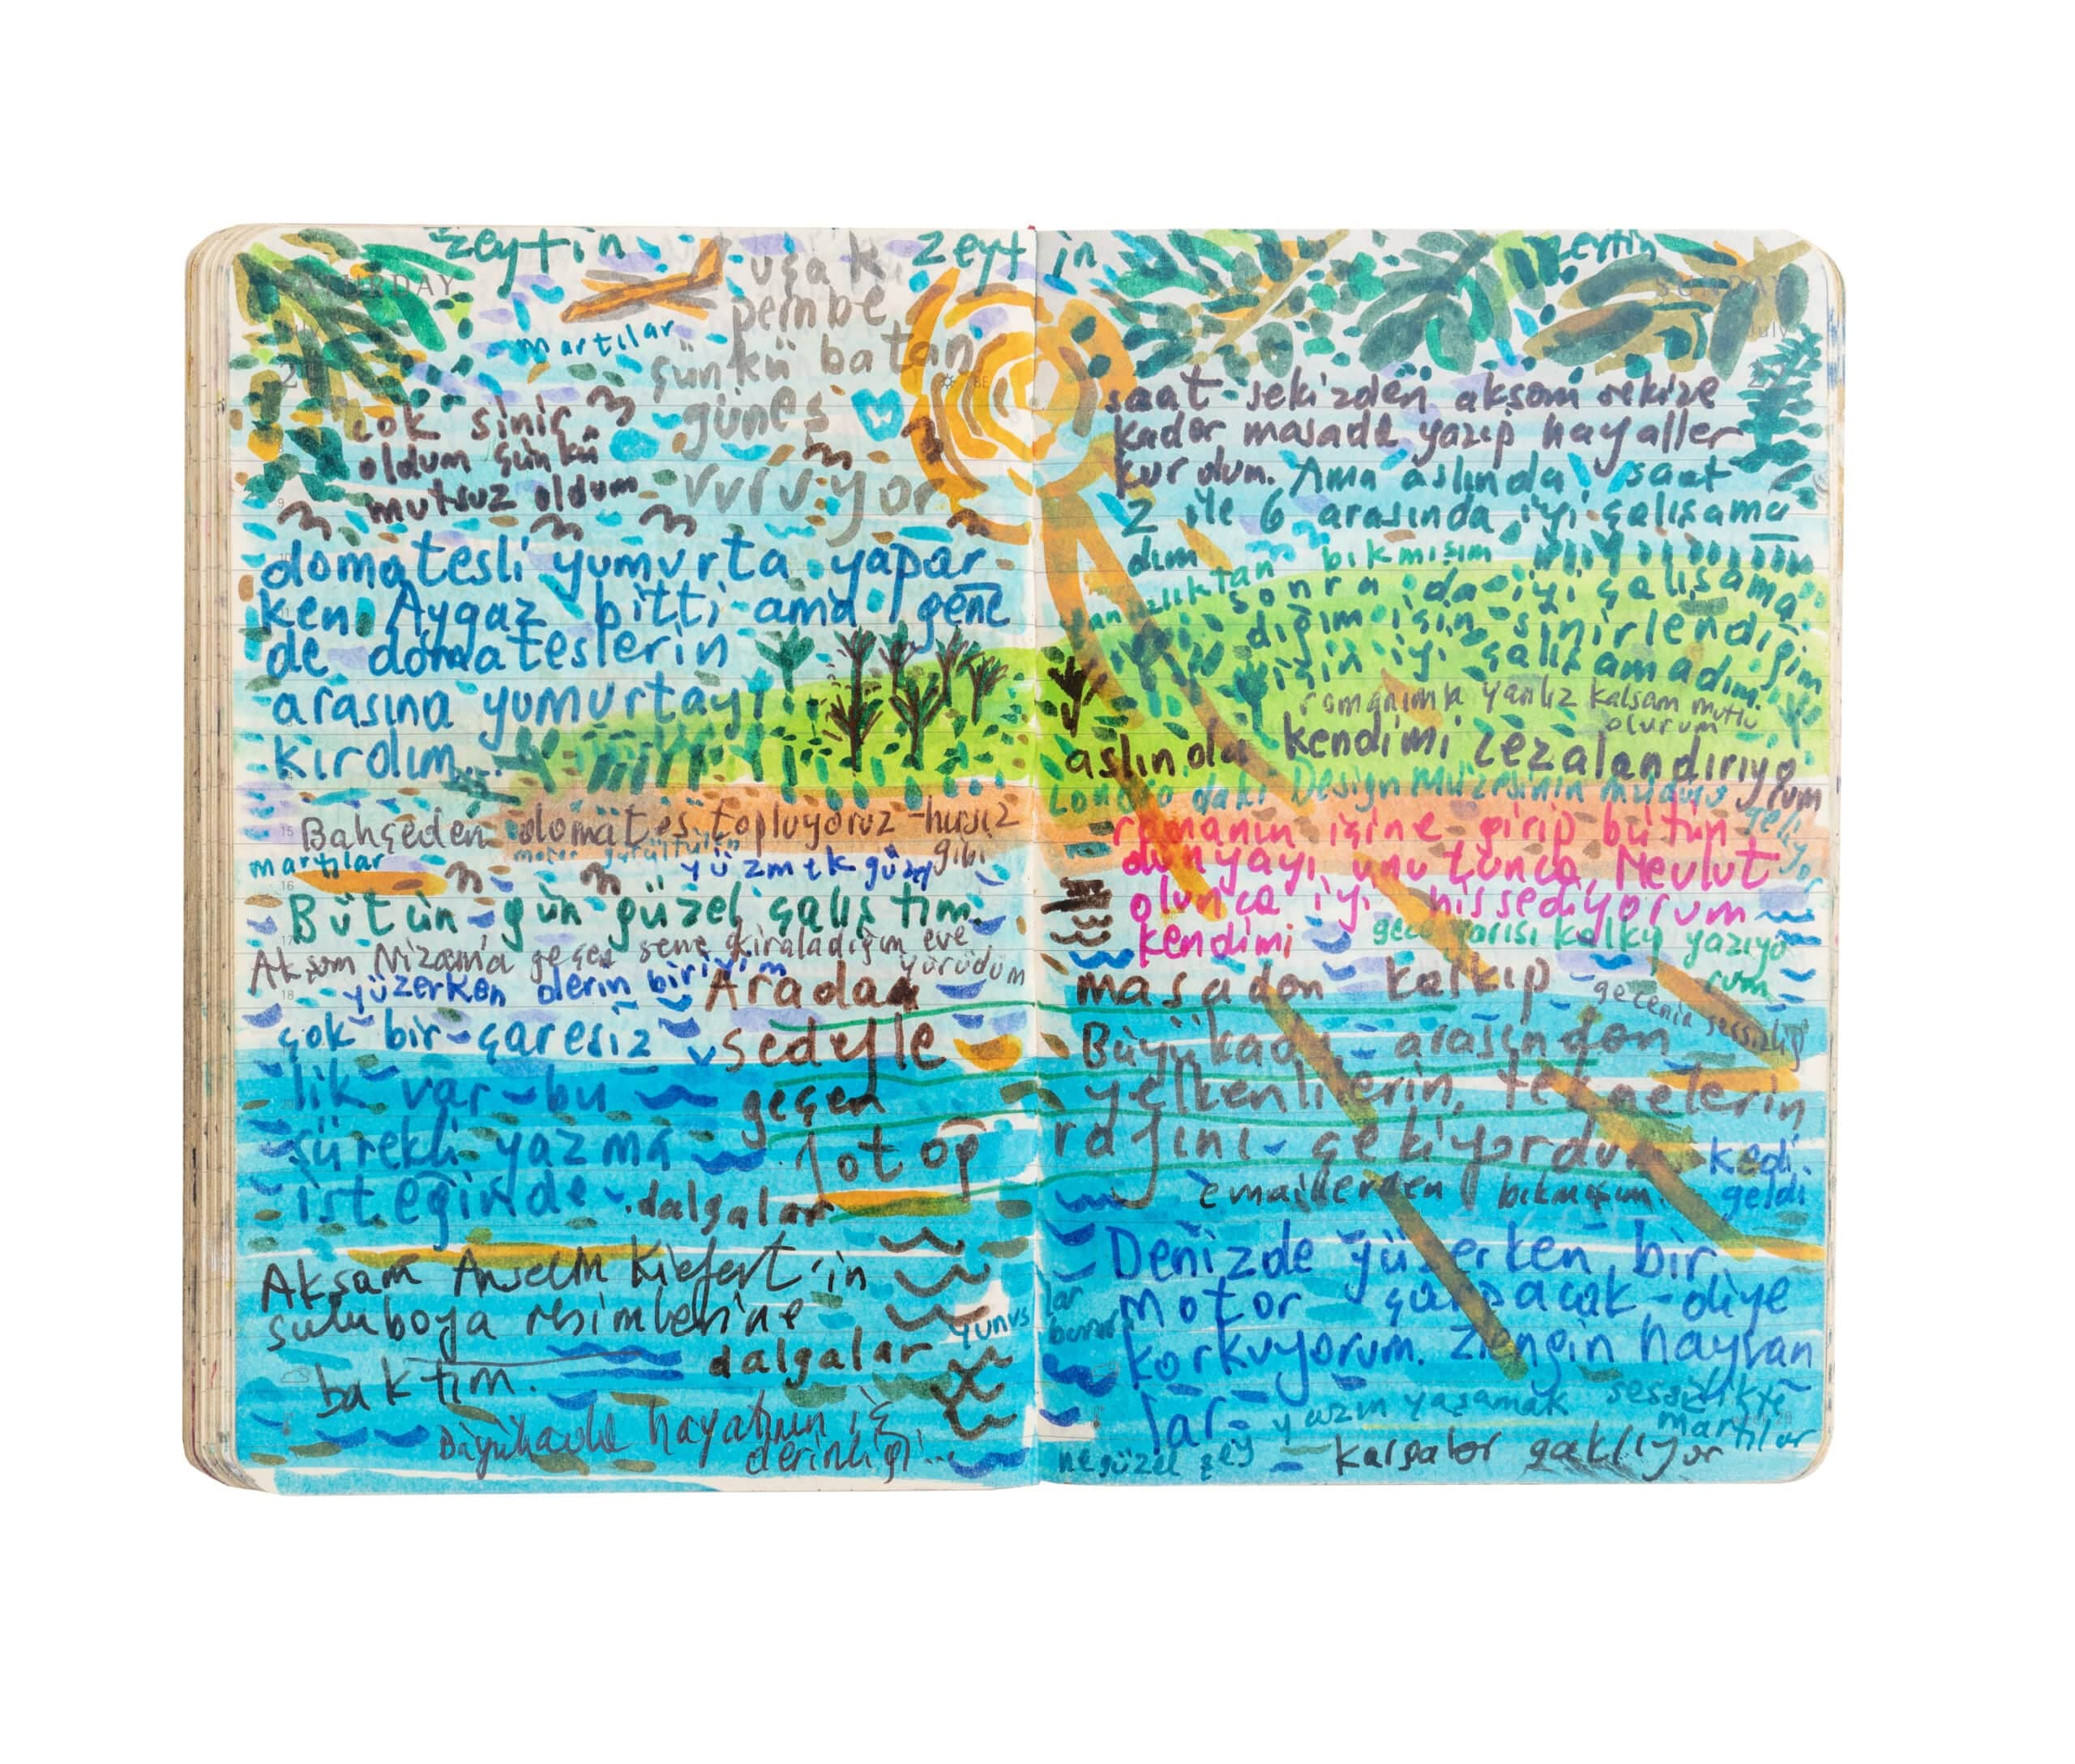 zeytin
SATURDAY
uçak
pembe
martılar
çünkü batan
güneş
vuruyor
çok sinir
oldum çünkü
mutsuz oldum
domatesli yumurta yapar
ken Aygaz bitti ama gene
de domateslerin
arasına yumurtayı
kırdım...
Bahçeden domates topluyoruz hırsız
gibi
martılar
yüzmek güzel
Bütün gün güzel çalıştım.
Akşam Nizama geçen sene kiraladığım eve
yürüdüm
yüzerken derin biriyim
çok bir çaresiz
lik var bu
sürekli yazma
isteğinde.
Aradan
Sedefle
geçen
dalgalar
Akşam Anselm Kiefert'in
suluboya resimlerine
baktım.
dalgalar
Büyükada hayatının iç
derinliği...
zeytin
zeytin
July
saat sekizden akşam sekize
kadar masada yazıp hayaller
kurdum. Ama aslında saat
2 ile 6 arasında iyi çalışama
dım
bıkmışım
sonra da iyi çalışama
dığım için sinirlendiğim
için iyi çalışamadım.
romanımla yanlız kalsam mutlu
olurum
aslında kendimi cezalandırıyo
rum
Londra daki Design Müzesinin müdürü
geliyor
romanın içine girip bütün
dünyayı unutunca, Mevlut
olunca iyi hissediyorum
kendimi
gece yarısı kalkıp yazıyo
rum
gecenin sessizliği
masadan kalkıp
Büyükada arasından
yelkenlilerin, teknelerin
fotoğrafını çekiyordum
kedi
geldi
emaillerden bıkmışım.
Denizde yüzerken bir
motor çarpacak diye
korkuyorum. Zengin hayvan
lar
yunus
burun
lar
yazın yaşamak sessizlikte
martılar
ne güzel şey
Kargalar gaklıyor